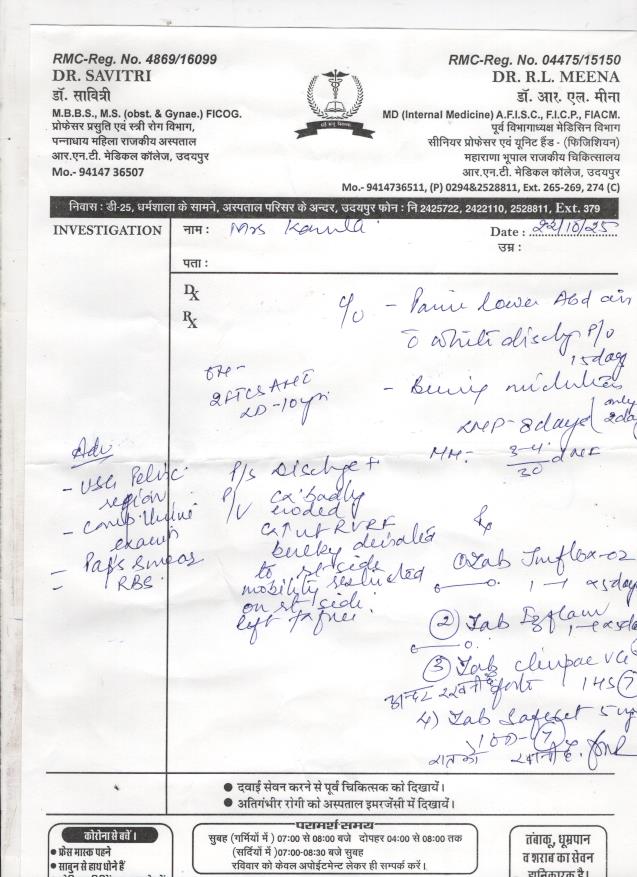 RMC-Reg. No. 4869/16099
DR. SAVITRI
डॉ. सावित्री
M.B.B.S., M.S. (obst. & Gynae.) FICOG.
प्रोफेसर प्रसुति एवं स्त्री रोग विभाग,
पन्नाधाय महिला राजकीय अस्पताल
आर.एन.टी. मेडिकल कॉलेज, उदयपुर
Mo.- 94147 36507
RMC-Reg. No. 04475/15150
DR. R.L. MEENA
डॉ. आर. एल. मीना
MD (Internal Medicine) A.F.I.S.C., F.I.C.P., FIACM.
पूर्व विभागाध्यक्ष मेडिसिन विभाग
सीनियर प्रोफेसर एवं यूनिट हैंड - (फिजिशियन)
महाराणा भूपाल राजकीय चिकित्सालय
आर.एन.टी. मेडिकल कॉलेज, उदयपुर
Mo.- 9414736511, (P) 0294&2528811, Ext. 265-269, 274 (C)
निवास : डी-25, धर्मशाला के सामने, अस्पताल परिसर के अन्दर, उदयपुर फोन : नि 2425722, 2422110, 2528811, Ext. 379
INVESTIGATION
नाम : Mrs Kamla
Date : 22/10/25
उम्र :
पता :
Dx
Rx
c/o - Pain Lower Abd
white disch P/v
15 days
OH-
2FTCS
LD-10yr
- Burning
only 2 day
LMP-8days
MH- 3-4/30
Adv
- USG Pelvic
region
- Complete Urine
exam
- Paps smear
- RBS
P/s Discharge +
P/V Cx badly
eroded
Cx ut RVRF
deviated
to rt side
mobility restricted
on rt side.
left Fx free.
Rx
① Tab
1-1 x5days
② Tab
1-1 x5da
③ Tab
forte 1HS (7)
4) Tab 5 mg
1OD-(7)
रात को
● दवाई सेवन करने से पूर्व चिकित्सक को दिखायें।
● अतिगंभीर रोगी को अस्पताल इमरजेंसी में दिखायें।
कोरोना से बचें।
● फ्रेस मास्क पहने
● साबुन से हाथ धोने हैं
परामर्श समय
सुबह (गर्मियों में ) 07:00 से 08:00 बजे दोपहर 04:00 से 08:00 तक
(सर्दियों में ) 07:00-08:30 बजे सुबह
रविवार को केवल अपोईटमेन्ट लेकर ही सम्पर्क करें।
तंबाकू, धूम्रपान
व शराब का सेवन
हानिकारक है।